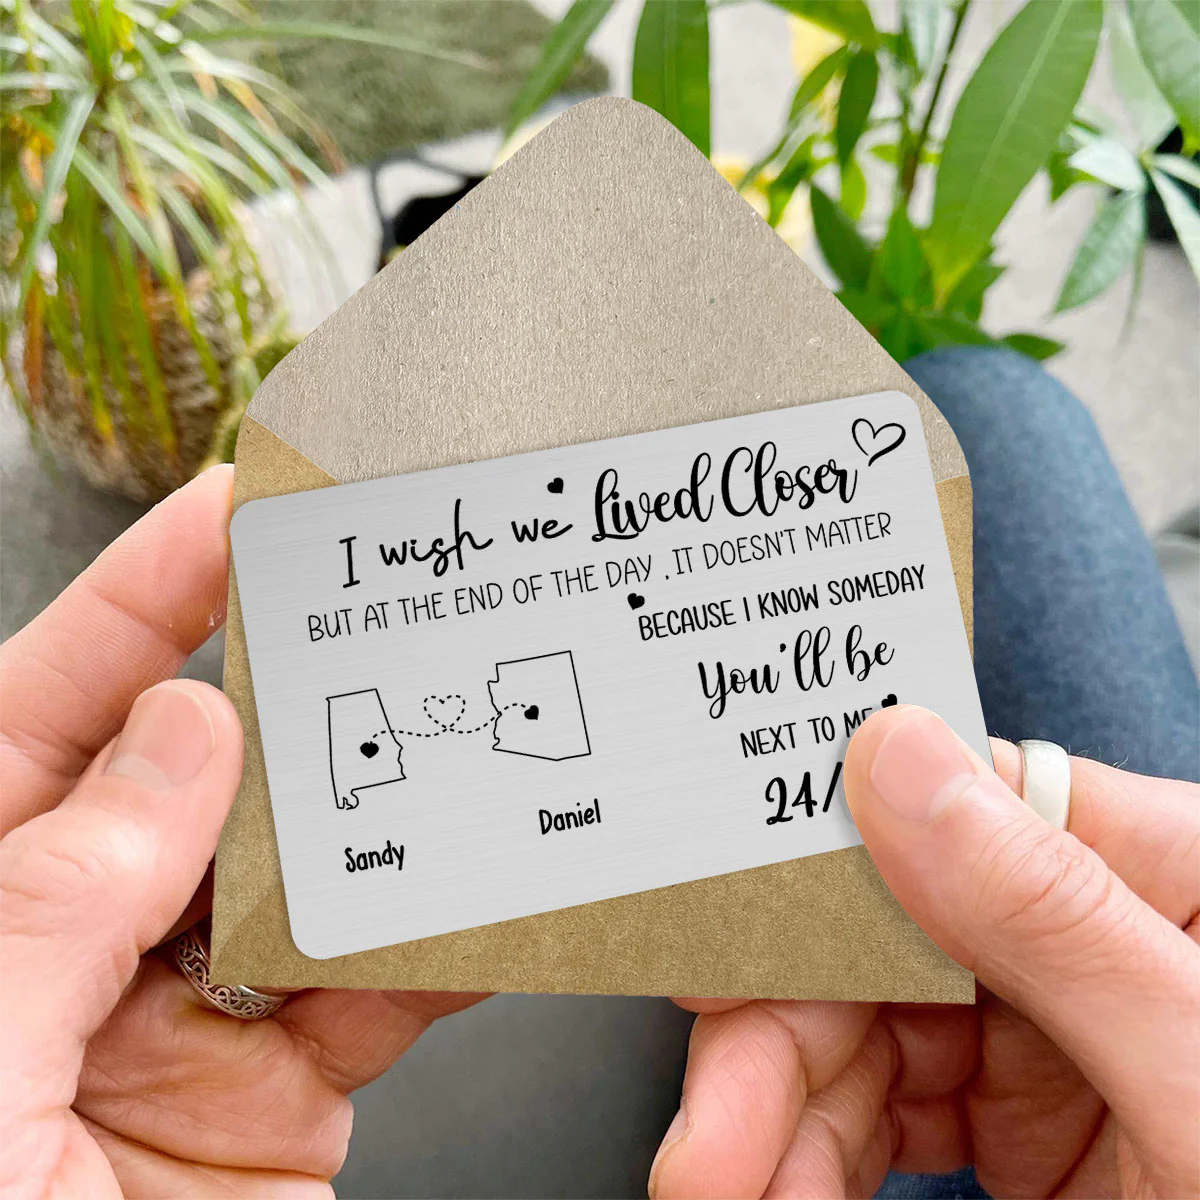 I wish we Lived Closer
BUT AT THE END OF THE DAY , IT DOESN'T MATTER
BECAUSE I KNOW SOMEDAY
You'll be
NEXT TO ME
24/
Daniel
Sandy